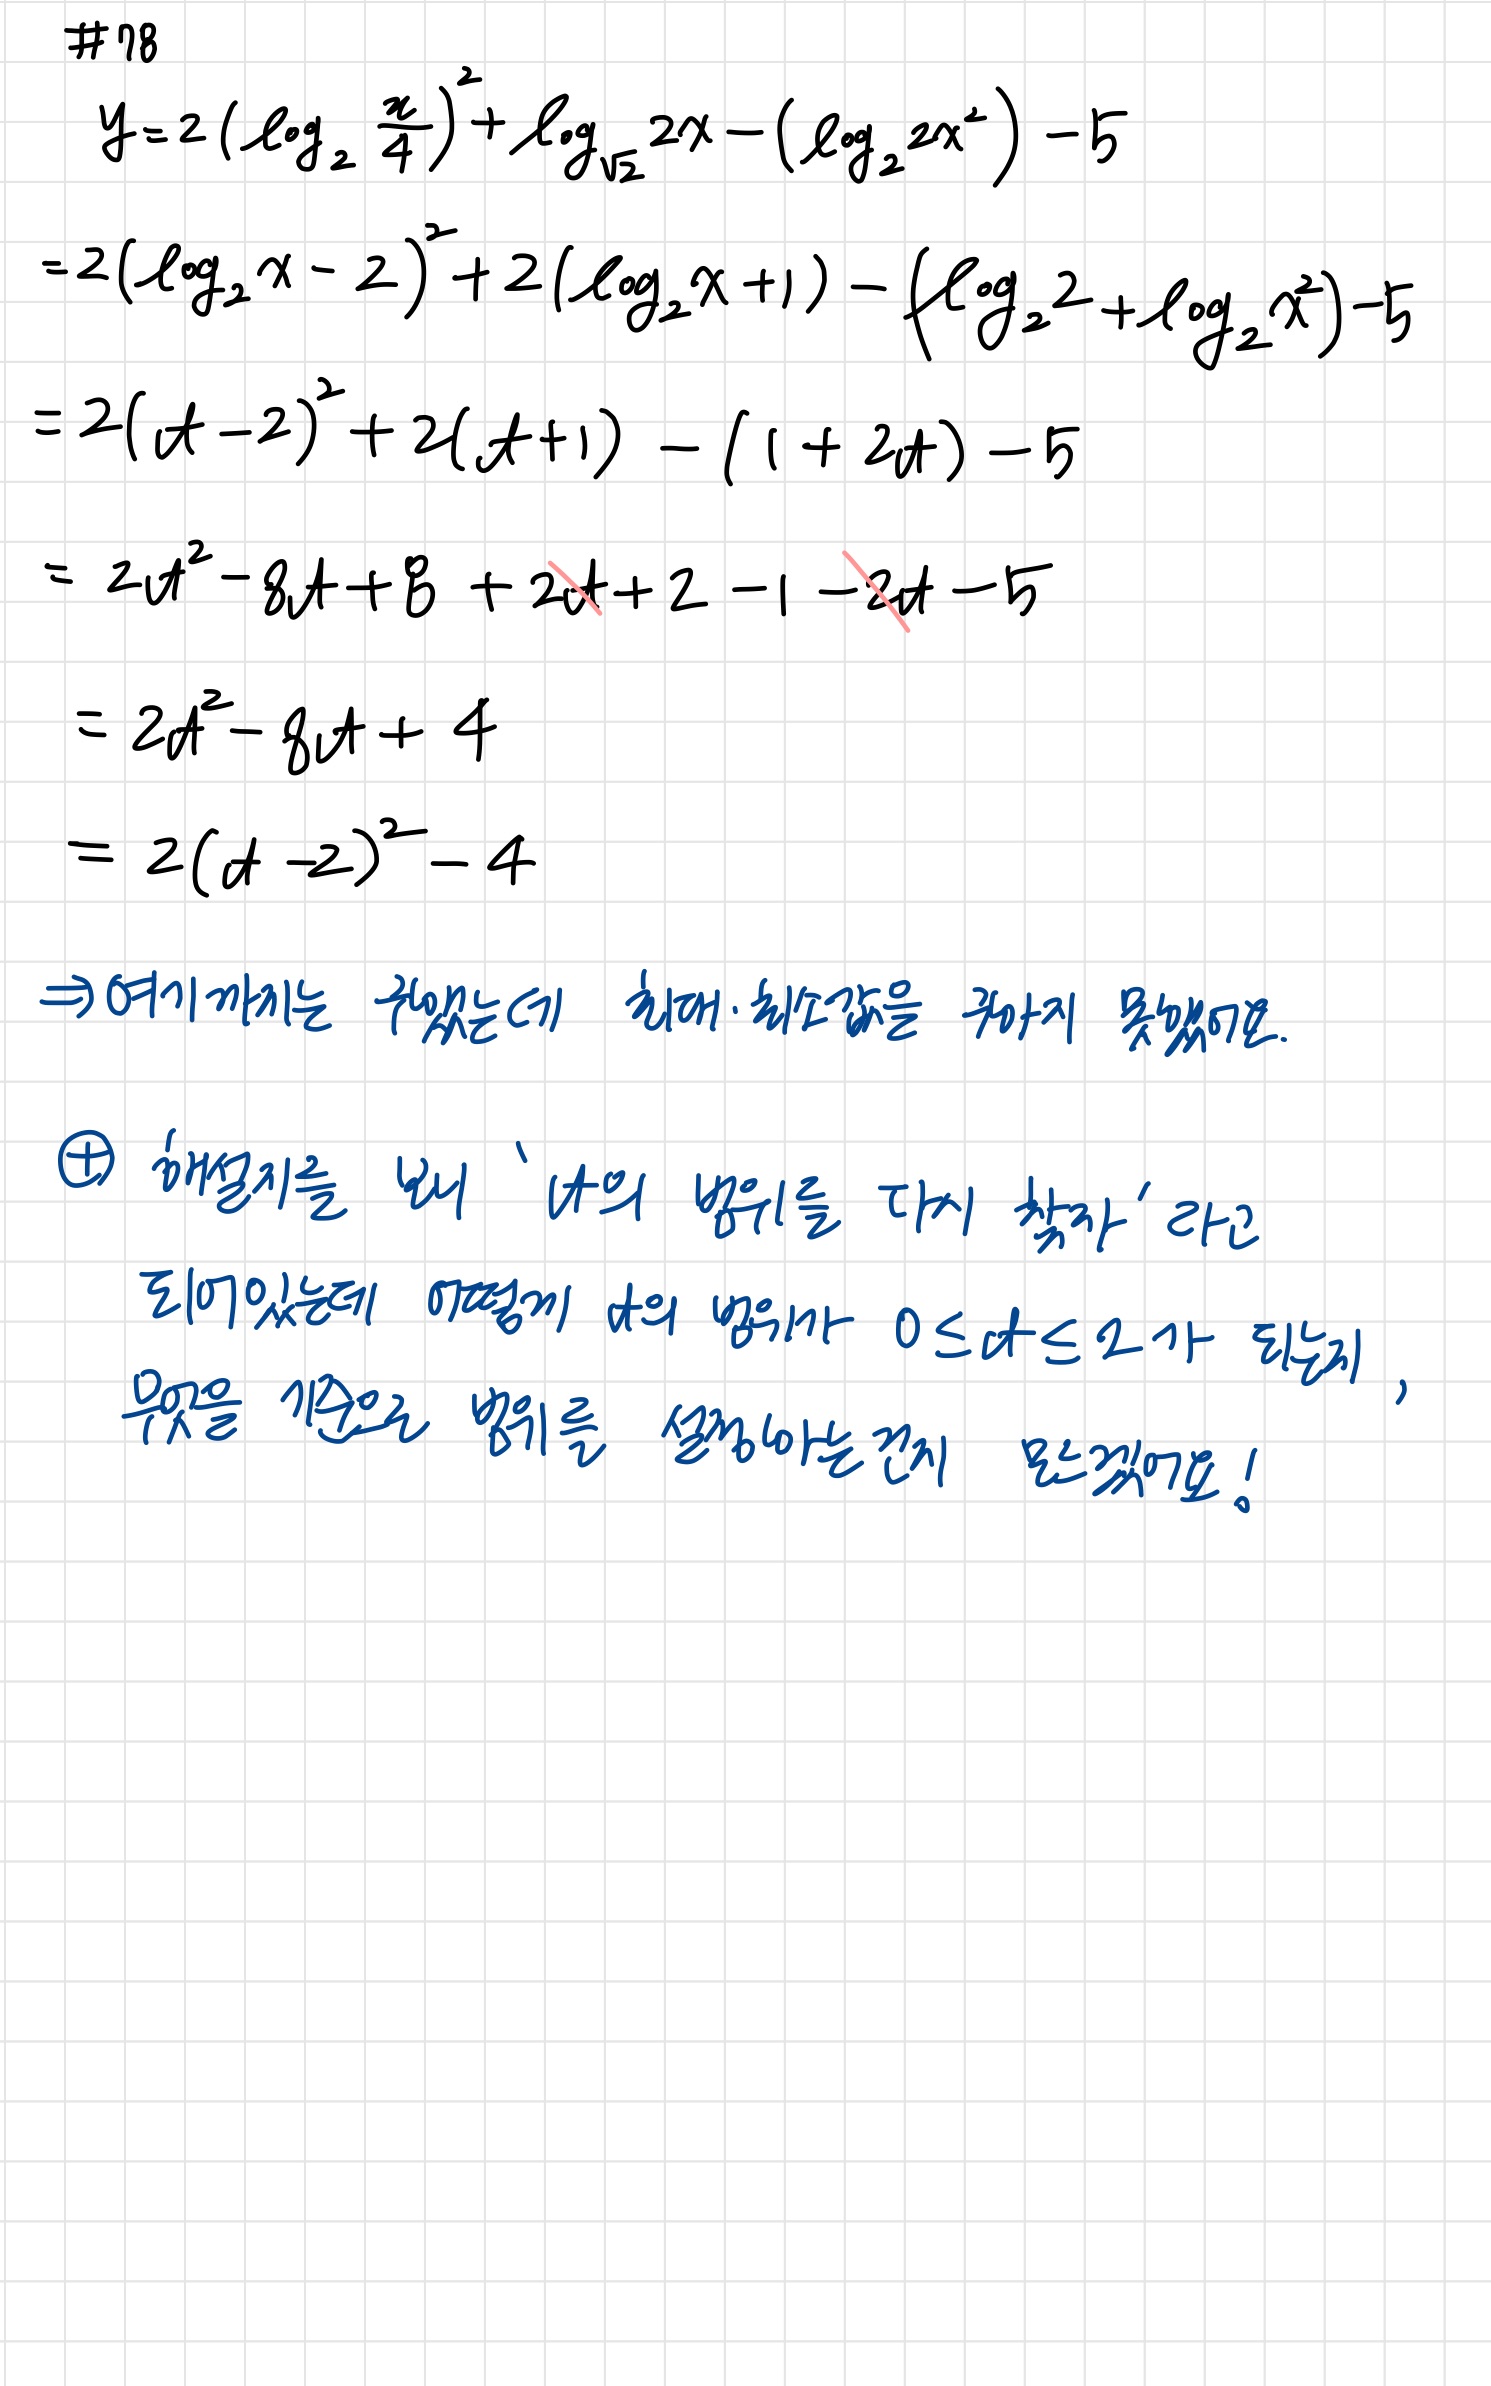 #78
y=2(log₂ x/4)²+log_√2 2x-(log₂2x²)-5
=2(log₂x-2)²+2(log₂x+1)-(log₂2+log₂x²)-5
=2(t-2)²+2(t+1)-(1+2t)-5
=2t²-8t+8+2t+2-1-2t-5
=2t²-8t+4
=2(t-2)²-4
⇒여기까지는 구했는데 최대·최소값을 구하지 못했어요.
⊕ 해설지를 보니 't의 범위를 다시 찾자' 라고
되어있는데 어떻게 t의 범위가 0≤t≤2가 되는지,
무엇을 기준으로 범위를 설정하는건지 모르겠어요!